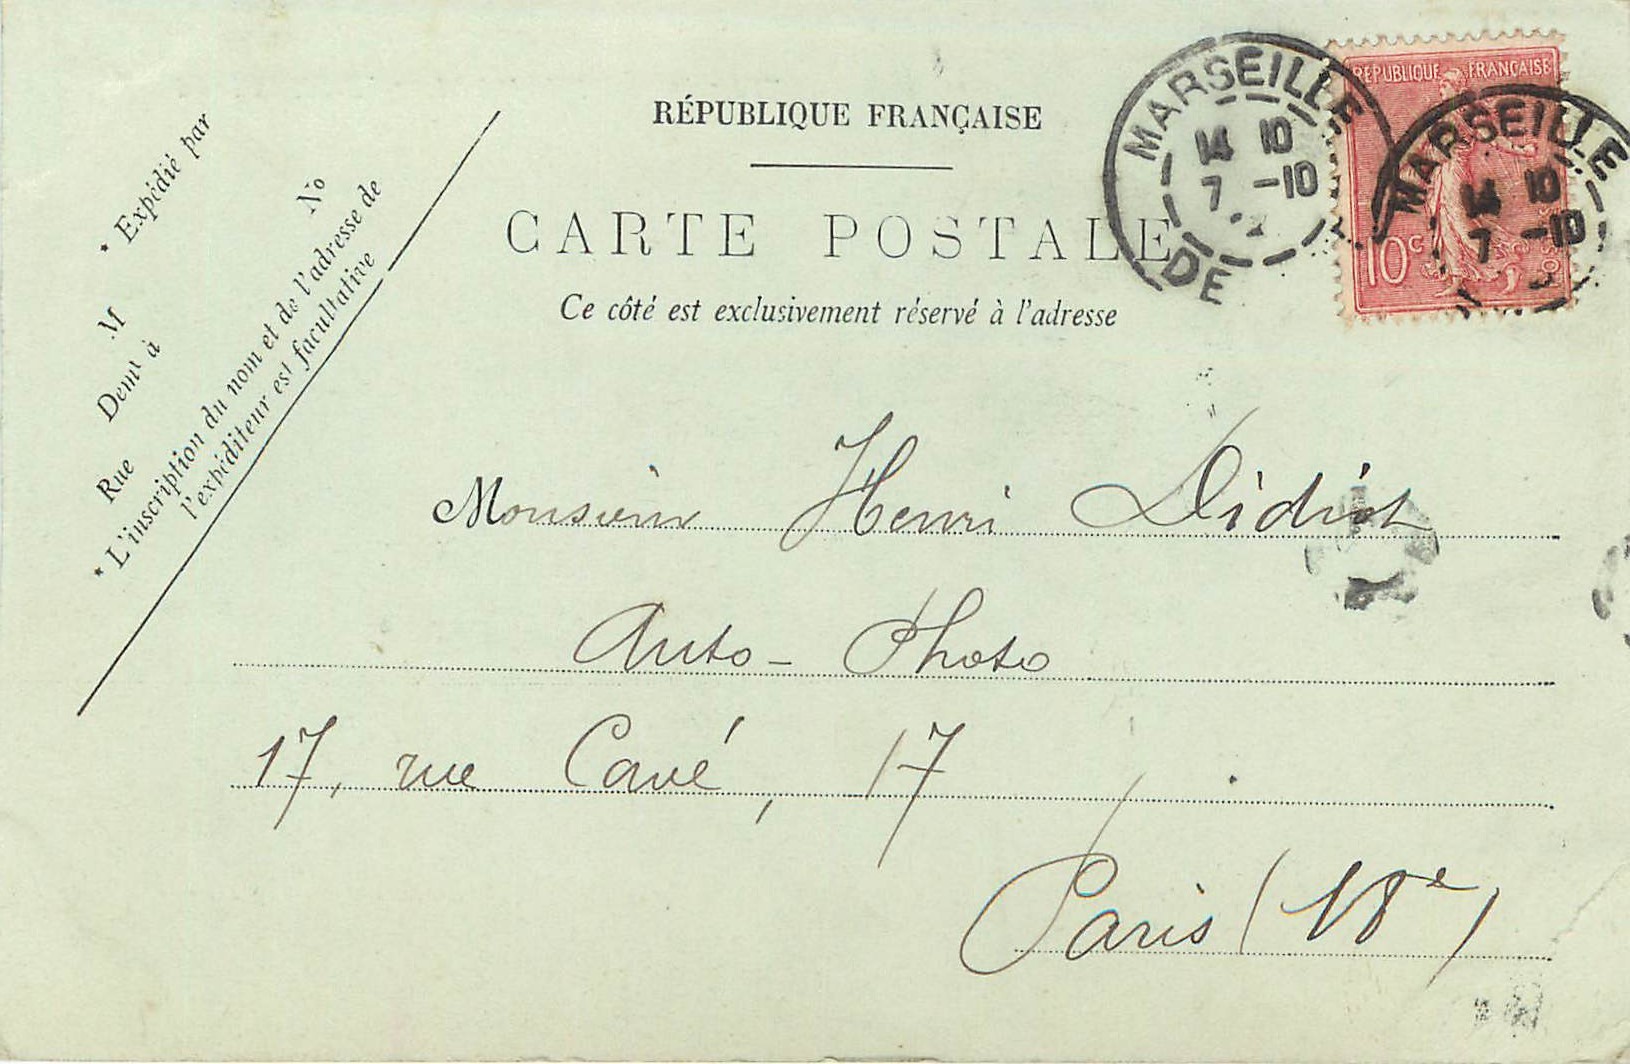 RÉPUBLIQUE FRANÇAISE
CARTE POSTALE
Ce côté est exclusivement réservé à l'adresse
* Expédié par
M
Demt à
Rue
No
* L'inscription du nom et de l'adresse de
l'expéditeur est facultative
MARSEILLE
14 10
7 -10
DE
REPUBLIQUE FRANÇAISE
10c
MARSEILLE
14 10
7 -10
Monsieur Henri Didiot
Auto-Photo
17, rue Cavé, 17
Paris (18e)